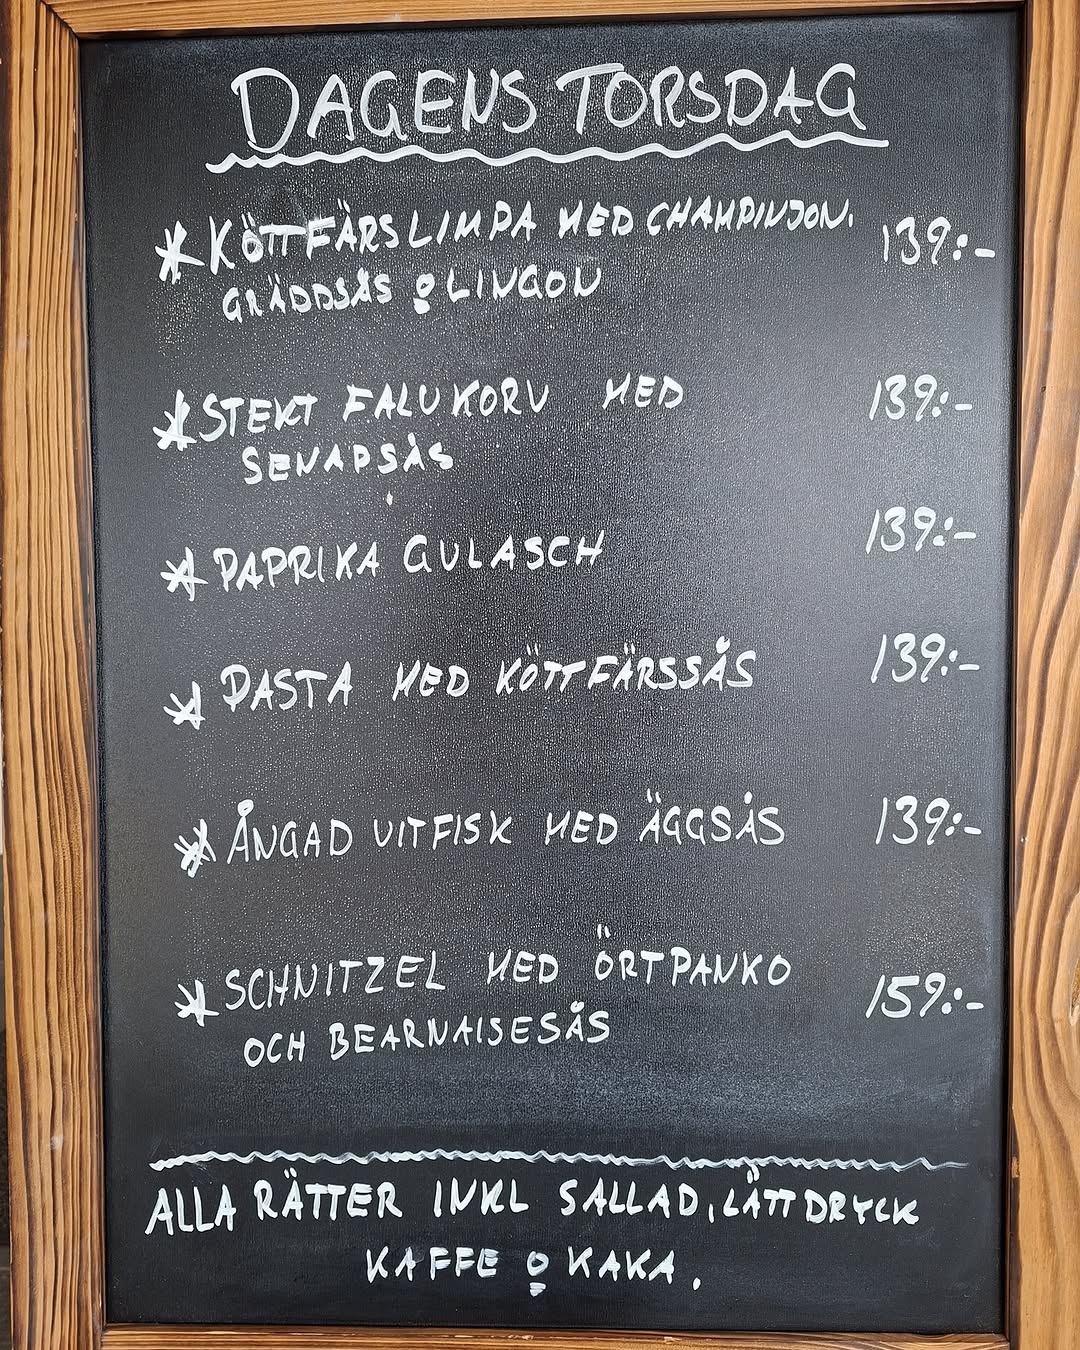 DAGENS TORSDAG
* KÖTTFÄRSLIMPA MED CHAMPINJON. 139:-
GRÄDDSÅS o LINGON
* STEKT FALUKORV MED 139:-
SENAPSÅS
* PAPRIKA GULASCH 139:-
* PASTA MED KÖTTFÄRSSÅS 139:-
* ÅNGAD VITFISK MED ÄGGSÅS 139:-
* SCHNITZEL MED ÖRTPANKO 159:-
OCH BEARNAISESÅS
ALLA RÄTTER INKL SALLAD, LÄTTDRYCK
KAFFE o KAKA.